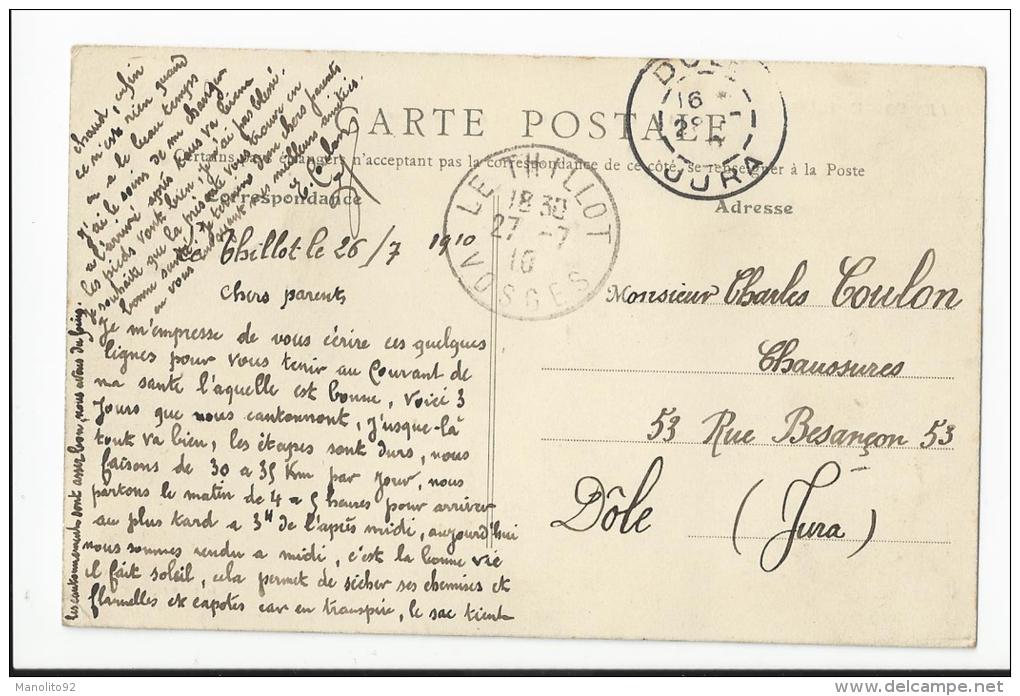 CARTE POSTALE
Certains pays étrangers n'acceptant pas la correspondance de ce côté, se renseigner à la Poste
Correspondance
Adresse
LE THILLOT
18 30
27 -7
10
VOSGES
16
JURA
Le Thillot le 26/7 1910
Chers parents
Je m'empresse de vous écrire ces quelques
lignes pour vous tenir au Courant de
ma sante l'aquelle est bonne, Voici 3
Jours que nous cantonnont, J'usque-là
tout va bien, les étapes sont durs, nous
faisons de 30 a 35 Km par jour, nous
partons le matin de 4 a 5 heures pour arriver
au plus tard a 3H de l'après midi, aujourd'hui
nous sommes rendu a midi, c'est la bonne vie
il fait soleil, cela permet de sécher ses chemises et
flannelles et capotes car on transpire, le sac tient
chaud, enfin
ce n'est rien quand
on a le beau temps
J'ai le soins de me changer
a l'arrivé après tous va bien
les pieds vont bien, j'ai pas blessé.
Je souhaite que la présente vous trouve en
bonne santé. Je termine mon chers parents
en vous envoyant mes meilleurs amitiés.
les cantonnements sont assez bon, nous avons du foing.
Monsieur Charles Coulon
Chaussures
53 Rue Besançon 53
Dôle (Jura)
Manolito92
www.delcampe.net